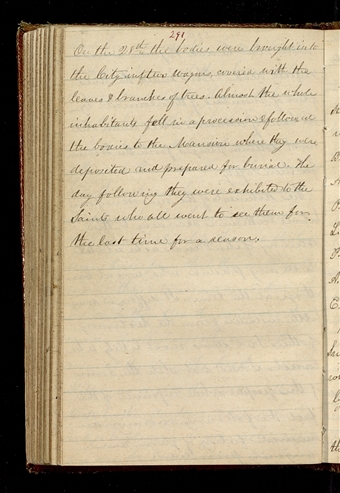 291
On the 28th the bodies were brought into
the City in two wagons, covered with the
leaves & branches of trees. Almost the whole
inhabitants fell in a procession & followed
the bodies to the Mansion where they were
deposited and prepared for burial. The
day following they were exhibited to the
Saints who all went to see them for
the last time for a season.